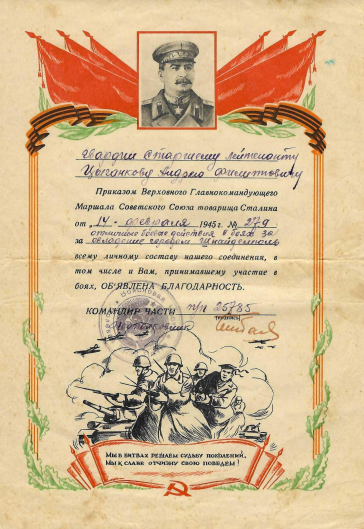 Гвардии Старшему лейтенанту
Цыганкову Андрею
Приказом Верховного Главнокомандующего
Маршала Советского Союза товарища Сталина
от „14“ февраля 1945 г. № 279
отличные боевые действия в боях за
за овладение городом Шнайдемюль
всему личному составу нашего соединения, в
том числе и Вам, принимавшему участие в
боях, ОБ'ЯВЛЕНА БЛАГОДАРНОСТЬ.
КОМАНДИР ЧАСТИ п/п 25785
(подпись)
МЫ В БИТВАХ РЕШАЕМ СУДЬБУ ПОКОЛЕНИЙ,
МЫ К СЛАВЕ ОТЧИЗНУ СВОЮ ПОВЕДЕМ!